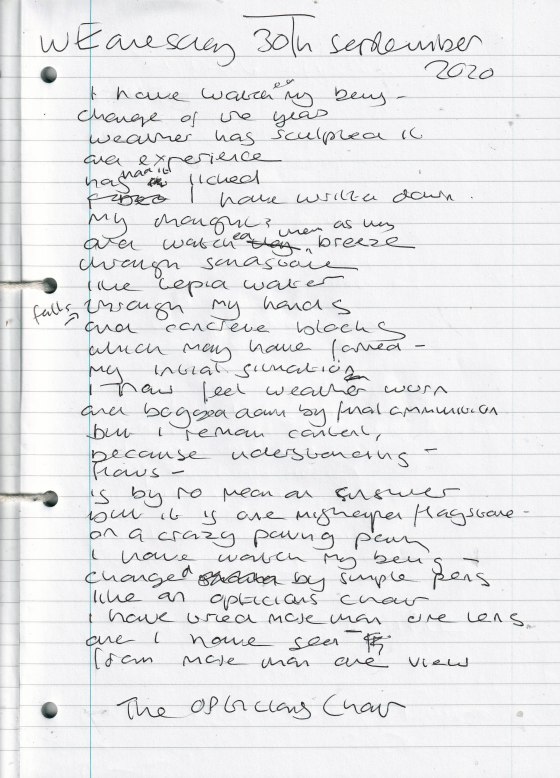 Wednesday 30Th September
2020
I have watched my being -
change of the years
weather has sculpted it
and experience
has licked
I have written down
my thoughts
and watched them as they breeze
through sandstone
like sepia water
falls through my hands
and concrete blocks
which may have formed -
my initial situation
I now feel weather worn
and bogged down by final
but I remain content,
because understanding -
flaws -
is by no mean an answer
but it is one mishapen flagstone -
on a crazy paving path
I have watch my being -
changed by simple
like an opticians chair
I have tried more than one lens
and I have seen
from more than one view
The Opticians Chair